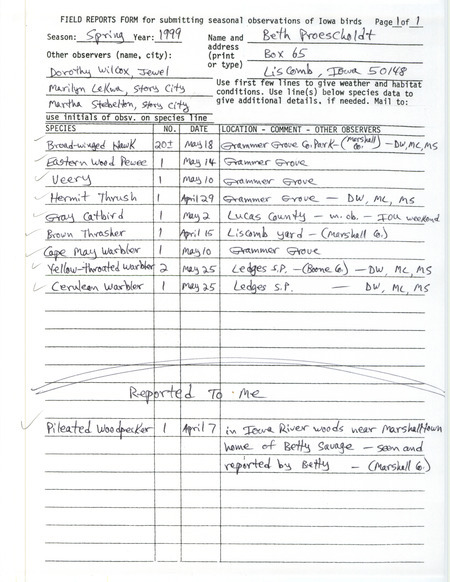 FIELD REPORTS FORM for submitting seasonal observations of Iowa birds Page 1 of 1
Season: Spring Year: 1999 Name and Beth Proescholdt
address
Other observers (name, city): (print Box 65
or type)
Dorothy Wilcox, Jewel Liscomb, Iowa 50148
Marilyn LeKwa, Story City
Martha Stebelton, Story City
Use first few lines to give weather and habitat
conditions. Use line(s) below species data to
give additional details, if needed. Mail to:
use initials of obsv. on species line
SPECIES NO. DATE LOCATION - COMMENT - OTHER OBSERVERS
Broad-winged Hawk 20± May 18 Grammer Grove Co. Park - (Marshall Co.) - DW, MC, MS
Eastern Wood Pewee 1 May 14 Grammer Grove
Veery 1 May 10 Grammer Grove
Hermit Thrush 1 April 29 Grammer Grove - DW, ML, MS
Gray Catbird 1 May 2 Lucas County - m. ob. - IOU weekend
Brown Thrasher 1 April 15 Liscomb yard - (Marshall Co.)
Cape May Warbler 1 May 10 Grammer Grove
Yellow-throated Warbler 2 May 25 Ledges S.P. - (Boone Co.) - DW, ML, MS
Cerulean Warbler 1 May 25 Ledges S.P. - DW, ML, MS
Reported To Me
Pileated Woodpecker 1 April 7 in Iowa River woods near Marshalltown
home of Betty Savage - seen and
reported by Betty - (Marshall Co.)